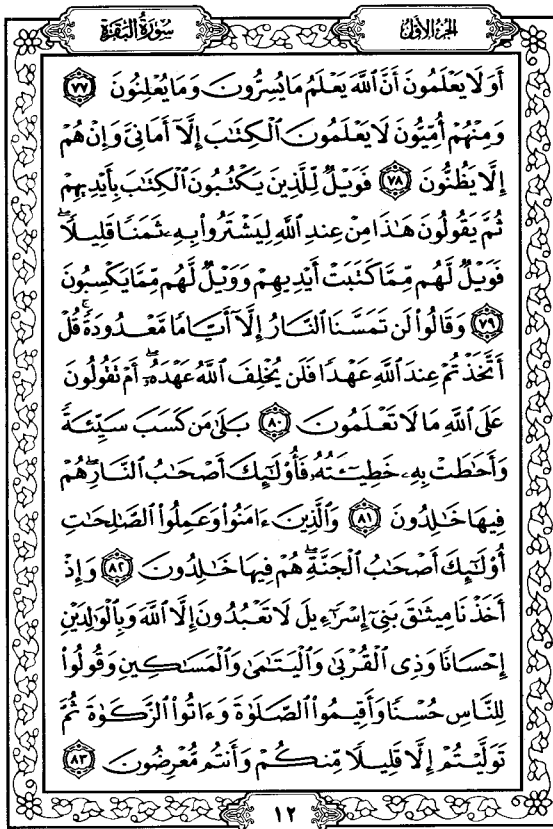 الجزء الأول
سورة البقرة
أَوَلَا يَعْلَمُونَ أَنَّ ٱللَّهَ يَعْلَمُ مَا يُسِرُّونَ وَمَا يُعْلِنُونَ ٧٧
وَمِنْهُمْ أُمِّيُّونَ لَا يَعْلَمُونَ ٱلْكِتَٰبَ إِلَّآ أَمَانِىَّ وَإِنْ هُمْ
إِلَّا يَظُنُّونَ ٧٨ فَوَيْلٌ لِّلَّذِينَ يَكْتُبُونَ ٱلْكِتَٰبَ بِأَيْدِيهِمْ
ثُمَّ يَقُولُونَ هَٰذَا مِنْ عِندِ ٱللَّهِ لِيَشْتَرُوا۟ بِهِۦ ثَمَنًا قَلِيلًا ۖ
فَوَيْلٌ لَّهُم مِّمَّا كَتَبَتْ أَيْدِيهِمْ وَوَيْلٌ لَّهُم مِّمَّا يَكْسِبُونَ
٧٩ وَقَالُوا۟ لَن تَمَسَّنَا ٱلنَّارُ إِلَّآ أَيَّامًا مَّعْدُودَةً ۚ قُلْ
أَتَّخَذْتُمْ عِندَ ٱللَّهِ عَهْدًا فَلَن يُخْلِفَ ٱللَّهُ عَهْدَهُۥٓ ۖ أَمْ تَقُولُونَ
عَلَى ٱللَّهِ مَا لَا تَعْلَمُونَ ٨٠ بَلَىٰ مَن كَسَبَ سَيِّئَةً
وَأَحَٰطَتْ بِهِۦ خَطِيٓـَٔتُهُۥ فَأُو۟لَٰٓئِكَ أَصْحَٰبُ ٱلنَّارِ ۖ هُمْ
فِيهَا خَٰلِدُونَ ٨١ وَٱلَّذِينَ ءَامَنُوا۟ وَعَمِلُوا۟ ٱلصَّٰلِحَٰتِ
أُو۟لَٰٓئِكَ أَصْحَٰبُ ٱلْجَنَّةِ ۖ هُمْ فِيهَا خَٰلِدُونَ ٨٢ وَإِذْ
أَخَذْنَا مِيثَٰقَ بَنِىٓ إِسْرَٰٓءِيلَ لَا تَعْبُدُونَ إِلَّا ٱللَّهَ وَبِٱلْوَٰلِدَيْنِ
إِحْسَانًا وَذِى ٱلْقُرْبَىٰ وَٱلْيَتَٰمَىٰ وَٱلْمَسَٰكِينِ وَقُولُوا۟
لِلنَّاسِ حُسْنًا وَأَقِيمُوا۟ ٱلصَّلَوٰةَ وَءَاتُوا۟ ٱلزَّكَوٰةَ ثُمَّ
تَوَلَّيْتُمْ إِلَّا قَلِيلًا مِّنكُمْ وَأَنتُم مُّعْرِضُونَ ٨٣
١٢